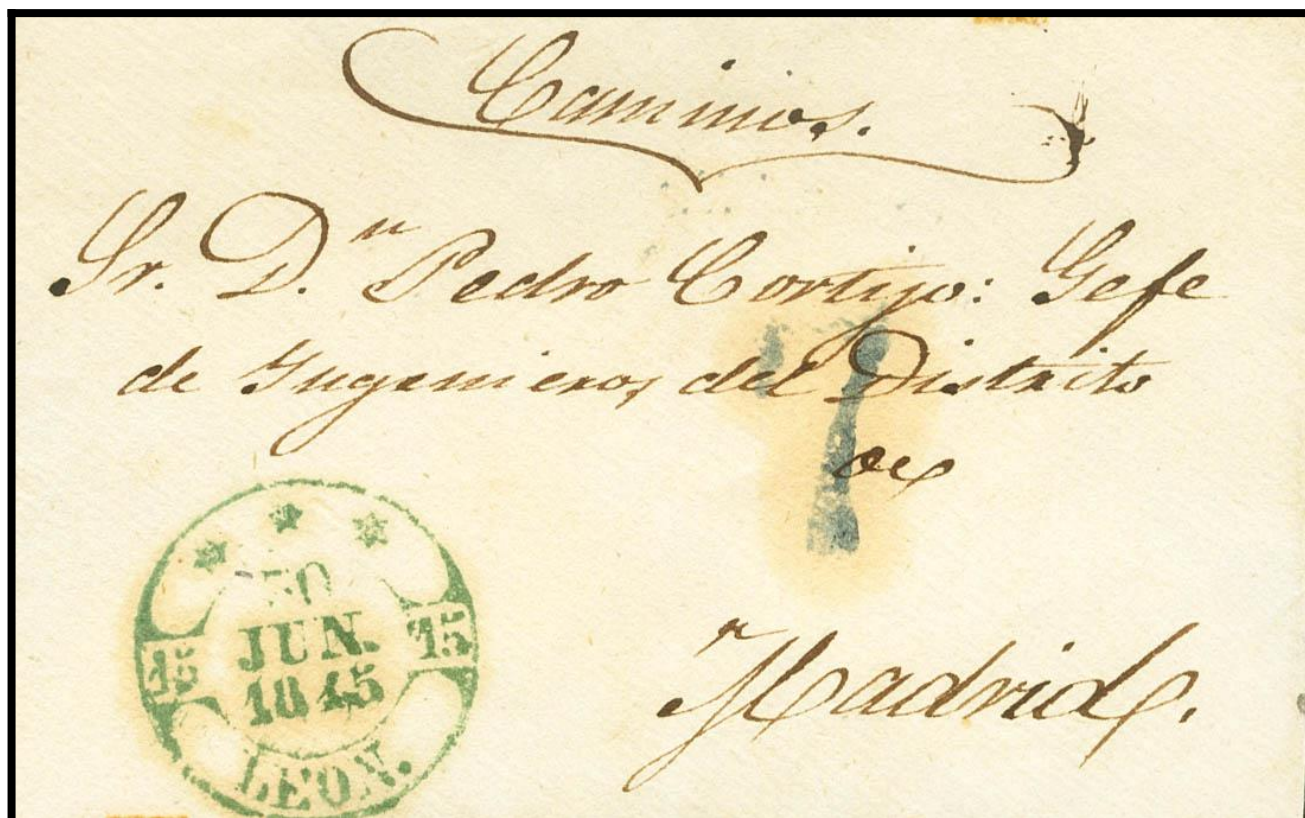 Caminos.
Sr. D.n Pedro Cortijo: Gefe
de Yngenieros del Distrito
de
Madrid.
30
JUN.
1845
15 15
LEON.